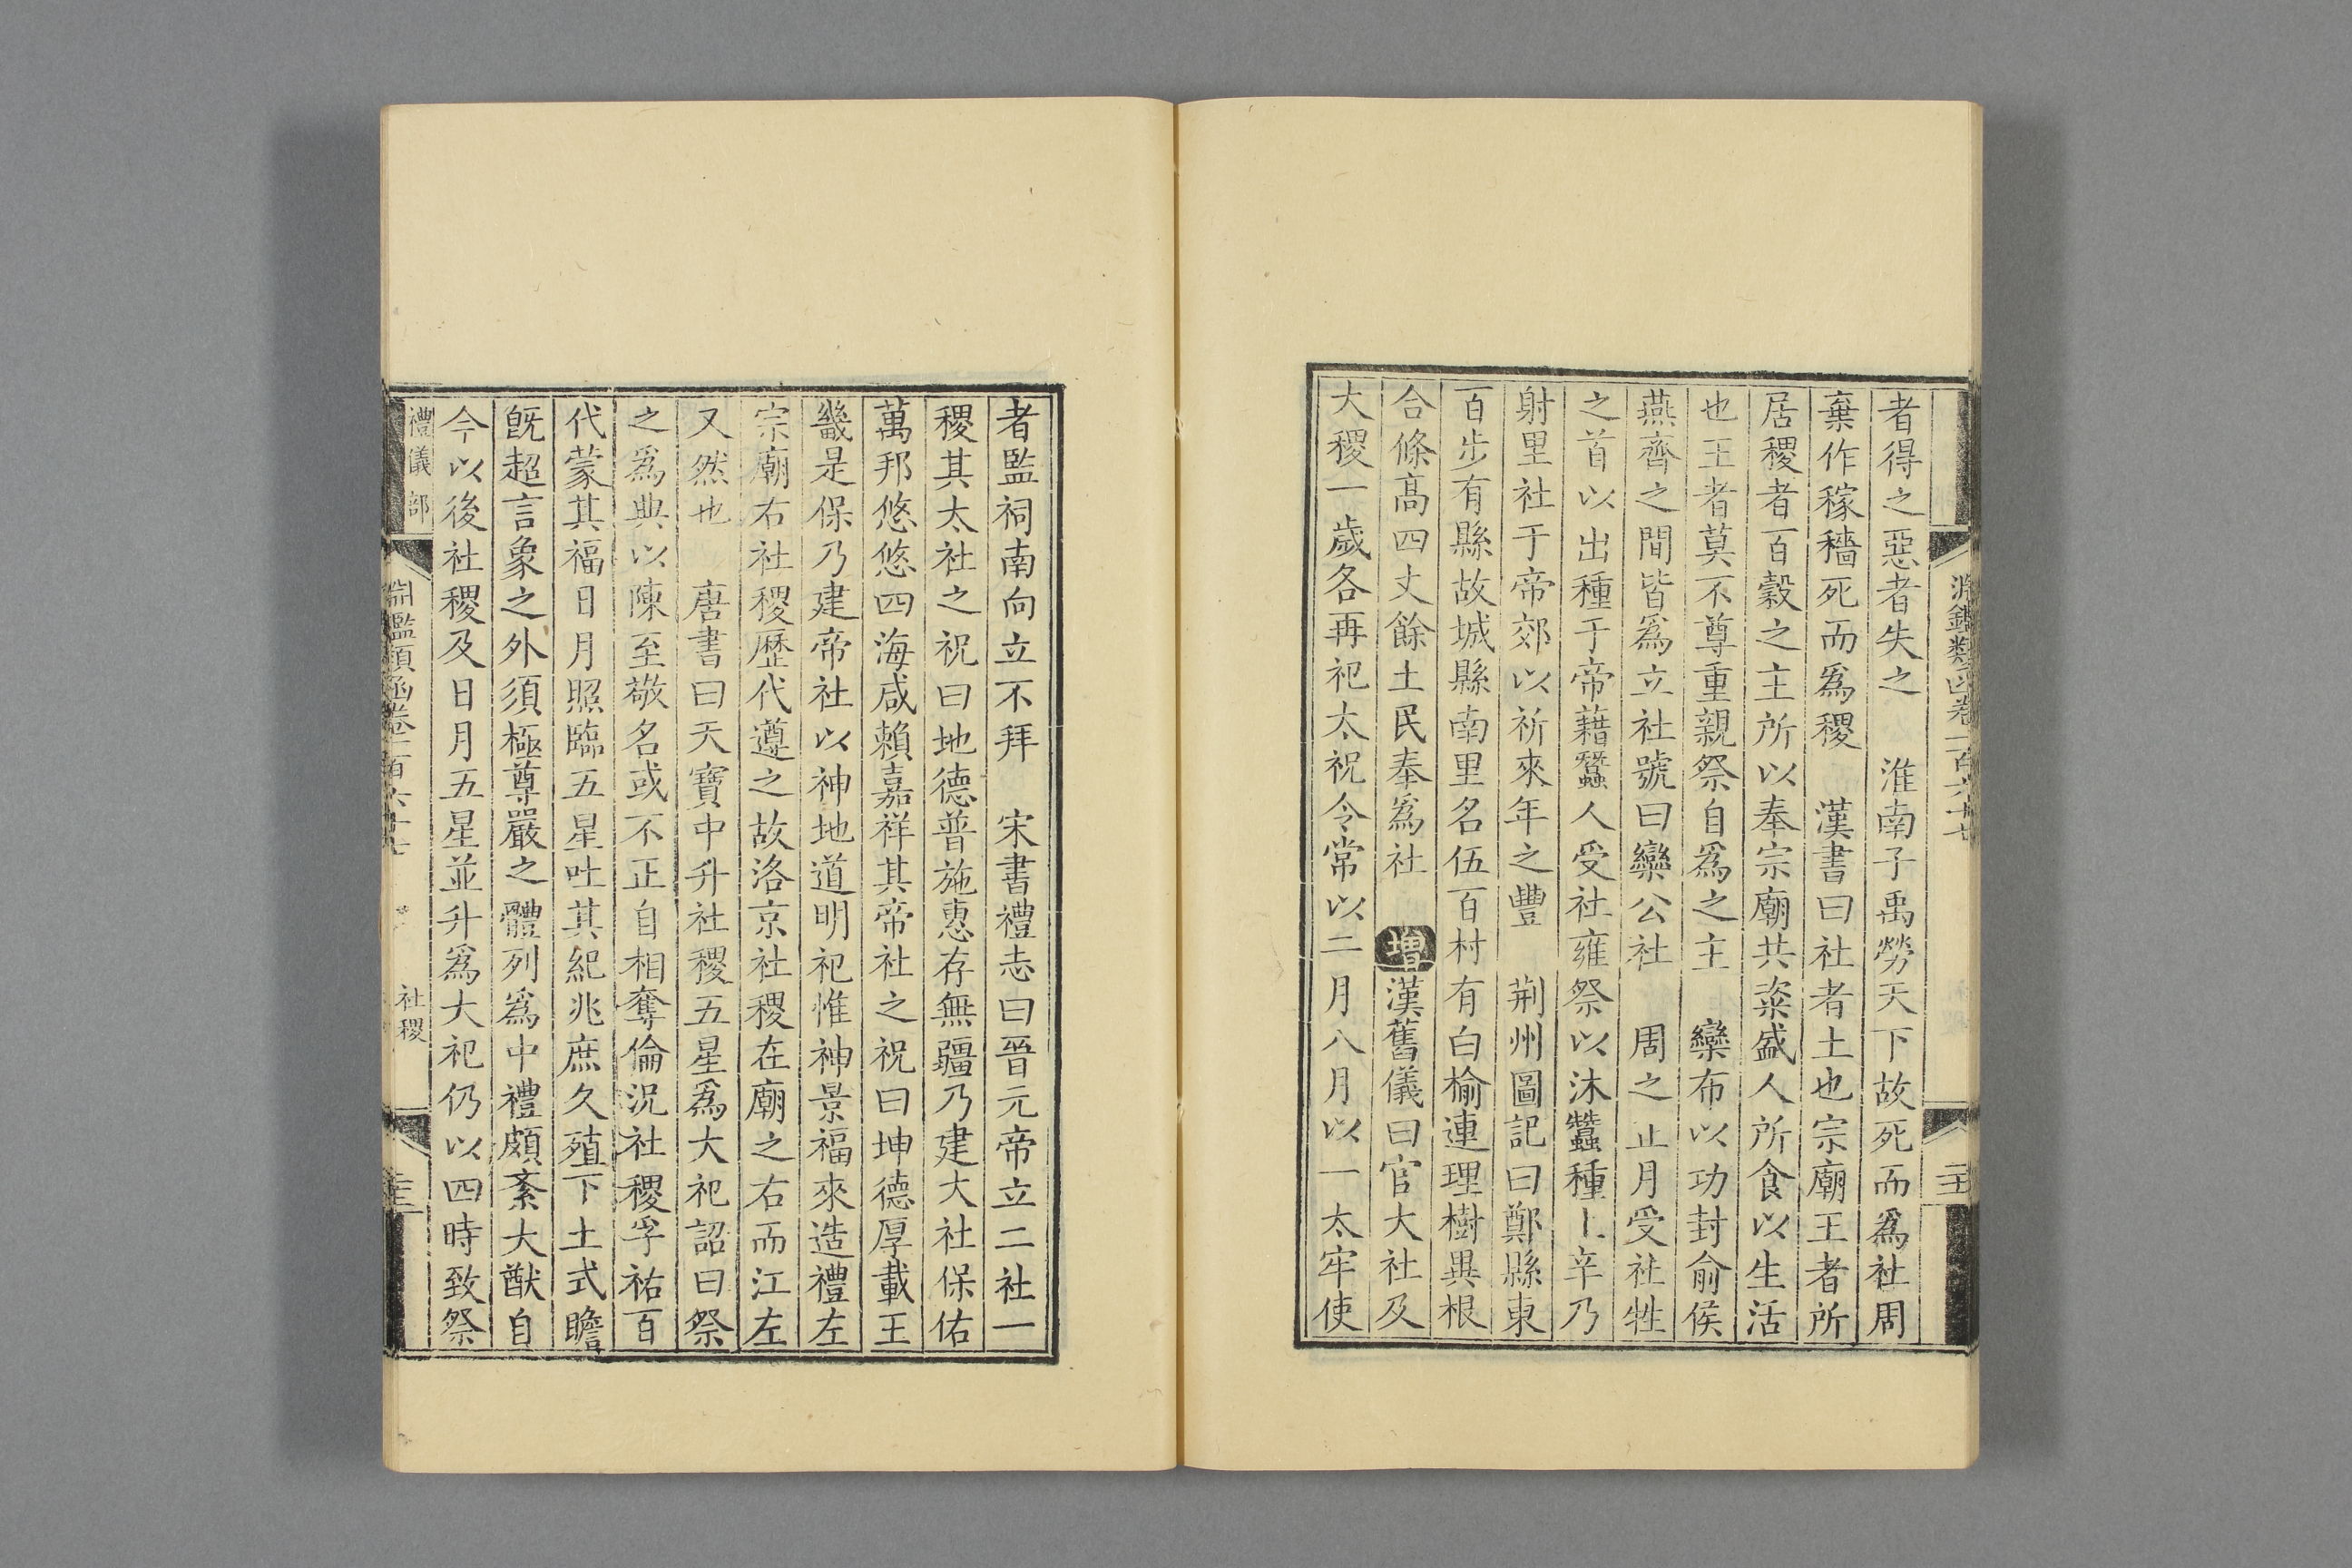 淵鑑類函卷一百六十七
者得之惡者失之　淮南子禹勞天下故死而爲社周
棄作稼穡死而爲稷　漢書曰社者土也宗廟王者所
居稷者百穀之主所以奉宗廟共粢盛人所食以生活
也王者莫不尊重親祭自爲之主　欒布以功封俞侯
燕齊之間皆爲立社號曰欒公社　周之止月受社牲
之首以出種于帝藉蠶人受社雍祭以沐蠶種丄辛乃
射里社于帝郊以祈來年之豐　荆州圖記曰鄭縣東
百步有縣故城縣南里名伍百村有白榆連理樹異根
合條高四丈餘土民奉爲社　增漢舊儀曰官大社及
大稷一歲各再祀太祝令常以二月八月以一太牢使
者監祠南向立不拜　宋書禮志曰晉元帝立二社一
稷其太社之祝曰地德普施惠存無疆乃建大社保佑
萬邦悠悠四海咸賴嘉祥其帝社之祝曰坤德厚載王
畿是保乃建帝社以神地道明祀惟神景福來造禮左
宗廟右社稷歷代遵之故洛京社稷在廟之右而江左
又然也　唐書曰天寶中升社稷五星爲大祀詔曰祭
之爲典以陳至敬名或不正自相奪倫況社稷孚祐百
代蒙其福日月照臨五星吐其紀兆庶久殖下土式瞻
旣超言象之外須極尊嚴之體列爲中禮頗紊大猷自
今以後社稷及日月五星並升爲大祀仍以四時致祭
禮儀部
淵鑑類函卷一百六十七
社稷